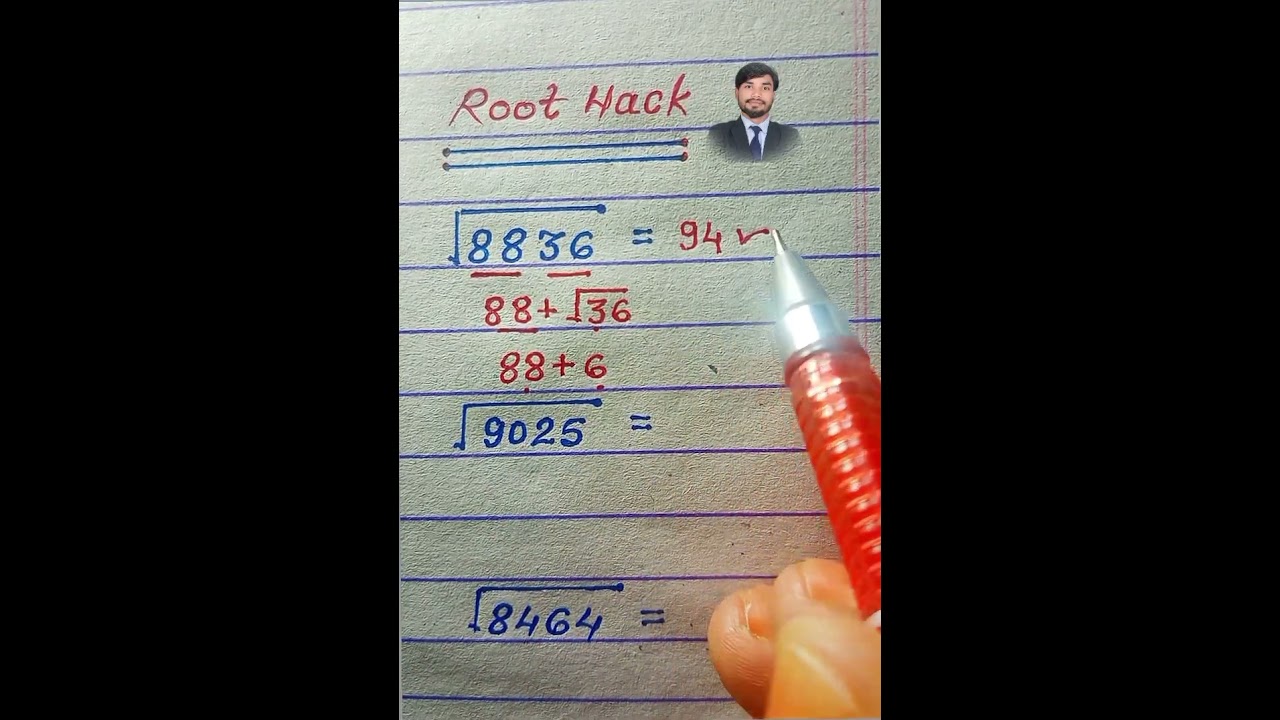 Root Hack
√8836 = 94 ✓
88+√36
88+6
√9025 =
√8464 =